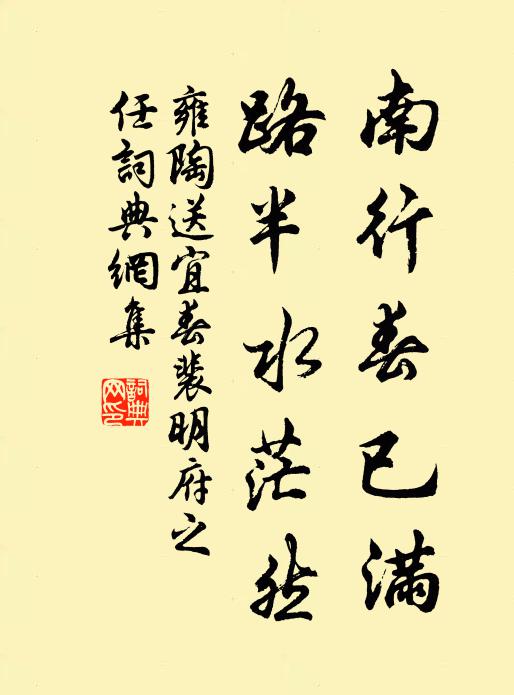 南行春已满
路半水茫然
雍陶送宜春裴明府之
任詞典網集
詞典網印